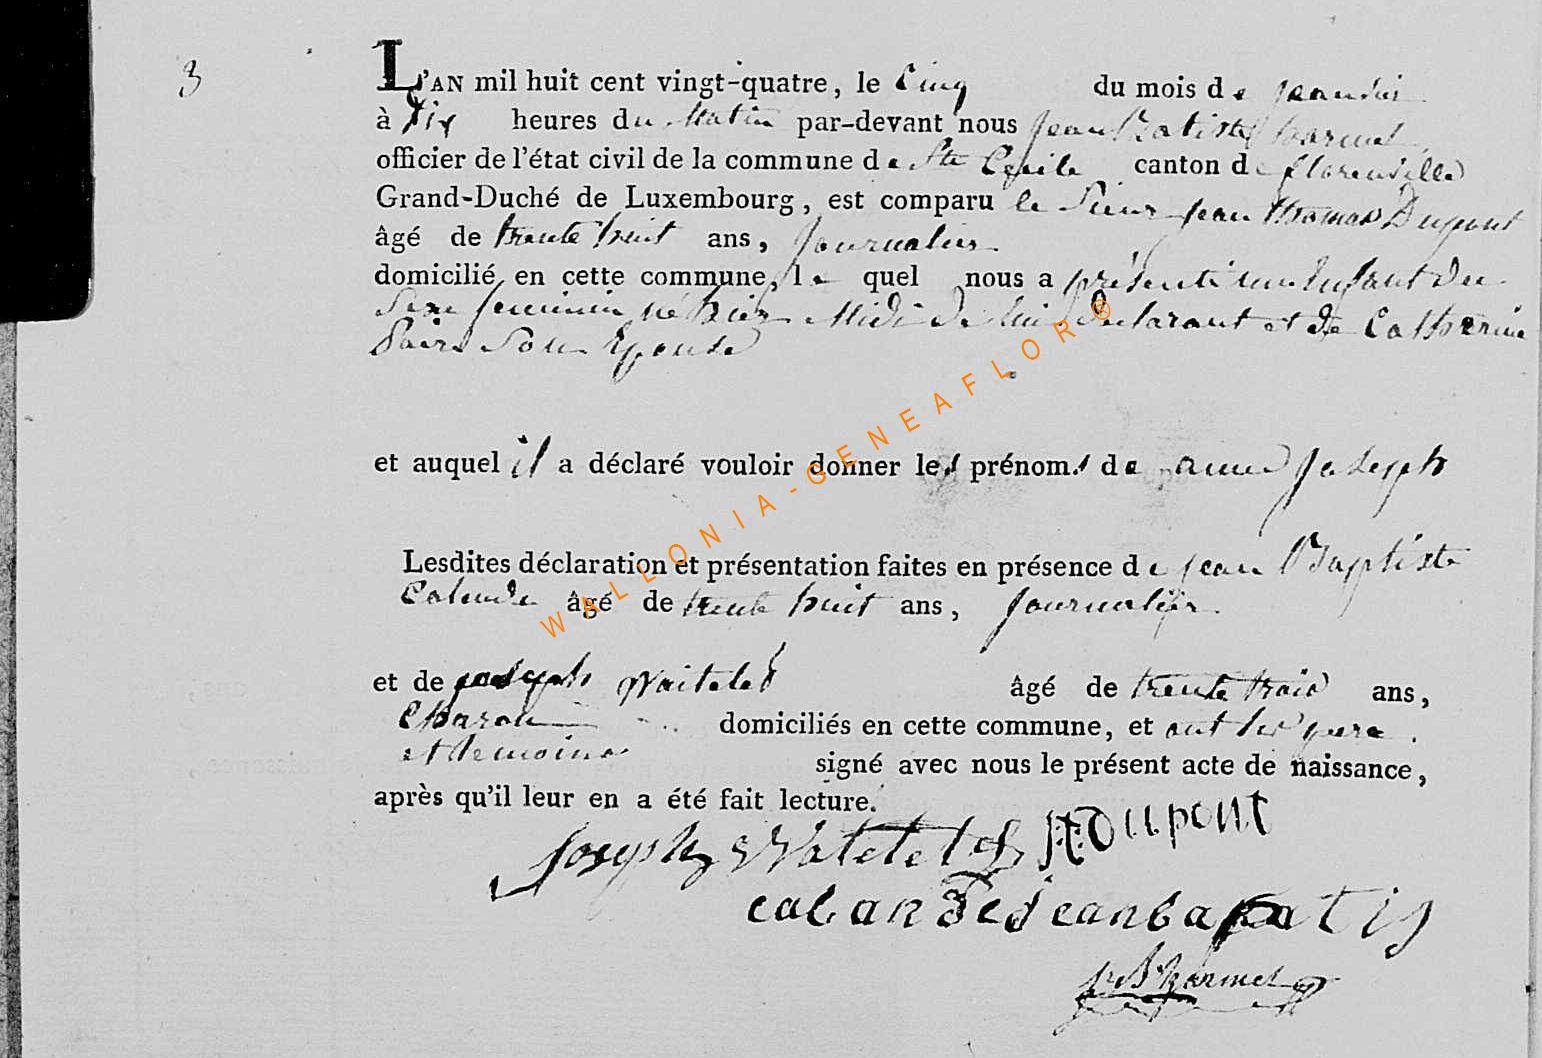 3
L'AN mil huit cent vingt-quatre, le Cinq du mois de janvier
à Dix heures du Matin par-devant nous jean Batiste harmel
officier de l'état civil de la commune de Ste Cecile canton de florenville
Grand-Duché de Luxembourg, est comparu le Sieur jean thomas Dupont
âgé de trente huit ans, journalier
domicilié en cette commune, le quel nous a présenté un Enfant du
Sexe feminin né hier Midi de lui declarant et de Catherine
Son Epouse
et auquel il a déclaré vouloir donner les prénoms de anne joseph
Lesdites déclaration et présentation faites en présence de jean Baptiste
âgé de trente huit ans, journalier.
et de joseph Watelet âgé de trente trois ans,
Charon domiciliés en cette commune, et ont les pere
et temoins signé avec nous le présent acte de naissance,
après qu'il leur en a été fait lecture.
joseph Watelet jtDupont
calande jean bapatis
jn Bte harmel
WALLONIA-GENEAFLOR®